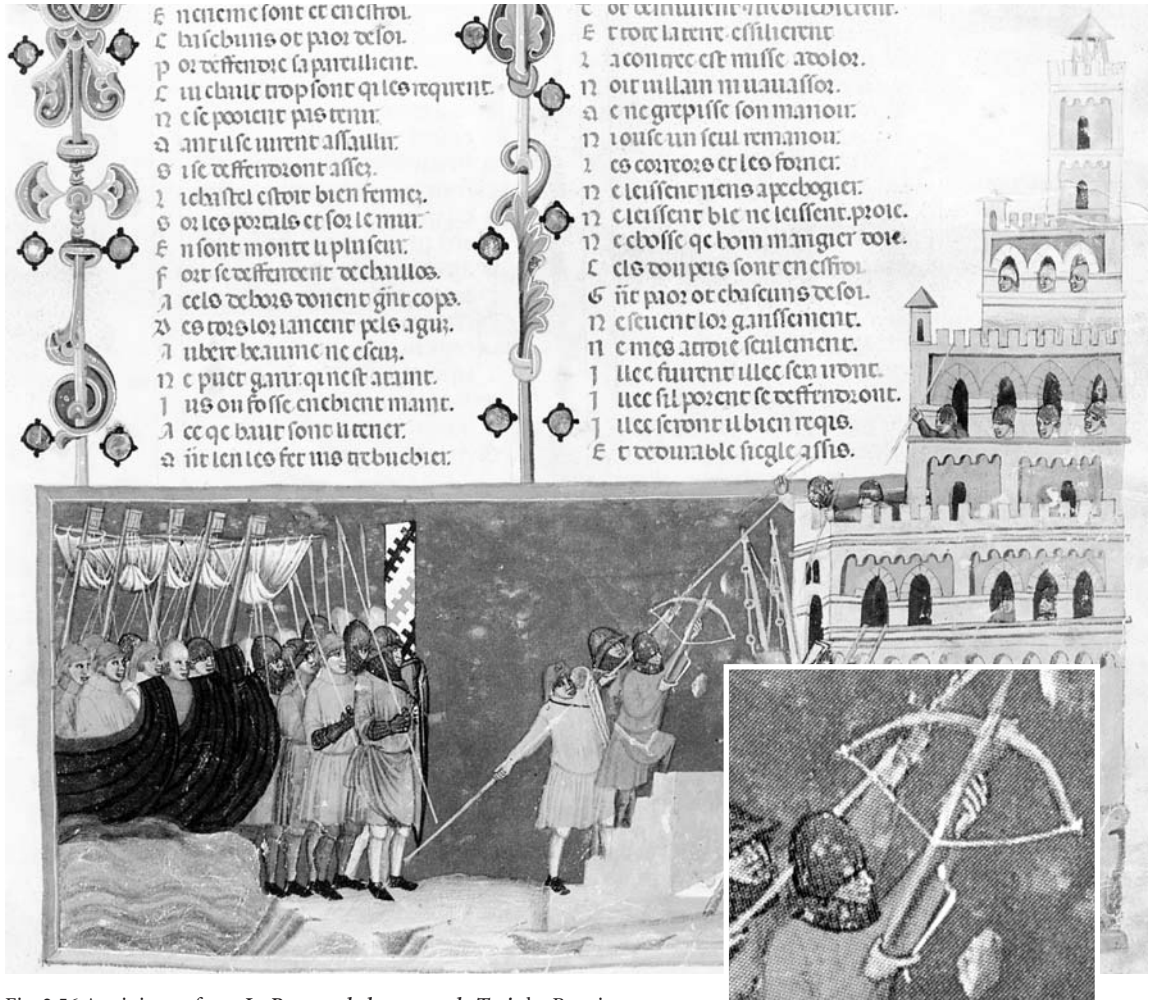 E n eneme sont et en esfroi.
C haschuns ot paor de soi.
P or deffendre sapareillient.
C ui chaut trop sont qi les reqirent.
N e se pooient pas tenir.
Q ant il se virent assaillir.
S i se deffendront assez.
L i chastel estoit bien fermez.
S or les portals et sor le mur.
E n sont monte li pluseur.
F ort se deffendent de chaillos.
A cels dehors donent gñt cops.
D es tors lor lancent pels aguz.
A ubert heaume ne escuz.
N e puet garir qi nest ataint.
I us ou fosse en chient maint.
A ce qe haut sont li terrer.
Q ñt len les fet ius trebuchier.
E t tote la terre essilierent
L a contree est misse a dolor.
N oit villain ni vavassor.
Q e ne grepisse son manoir.
N i ouse un seul remanoir.
L es correors et les forrier.
N e leissent riens a pechogier.
N e leissent ble ne leissent proie.
N e chosse qe hom mangier doie.
C els dou peis sont en esfroi
G ñt paor ot chascuns de soi.
N e sevent lor garissement.
N e mes a troie seulement.
I llec fuirent illec sen iront.
I llec sil porent se deffendront.
I llec seront il bien reqis.
E t de durable siegle assis.